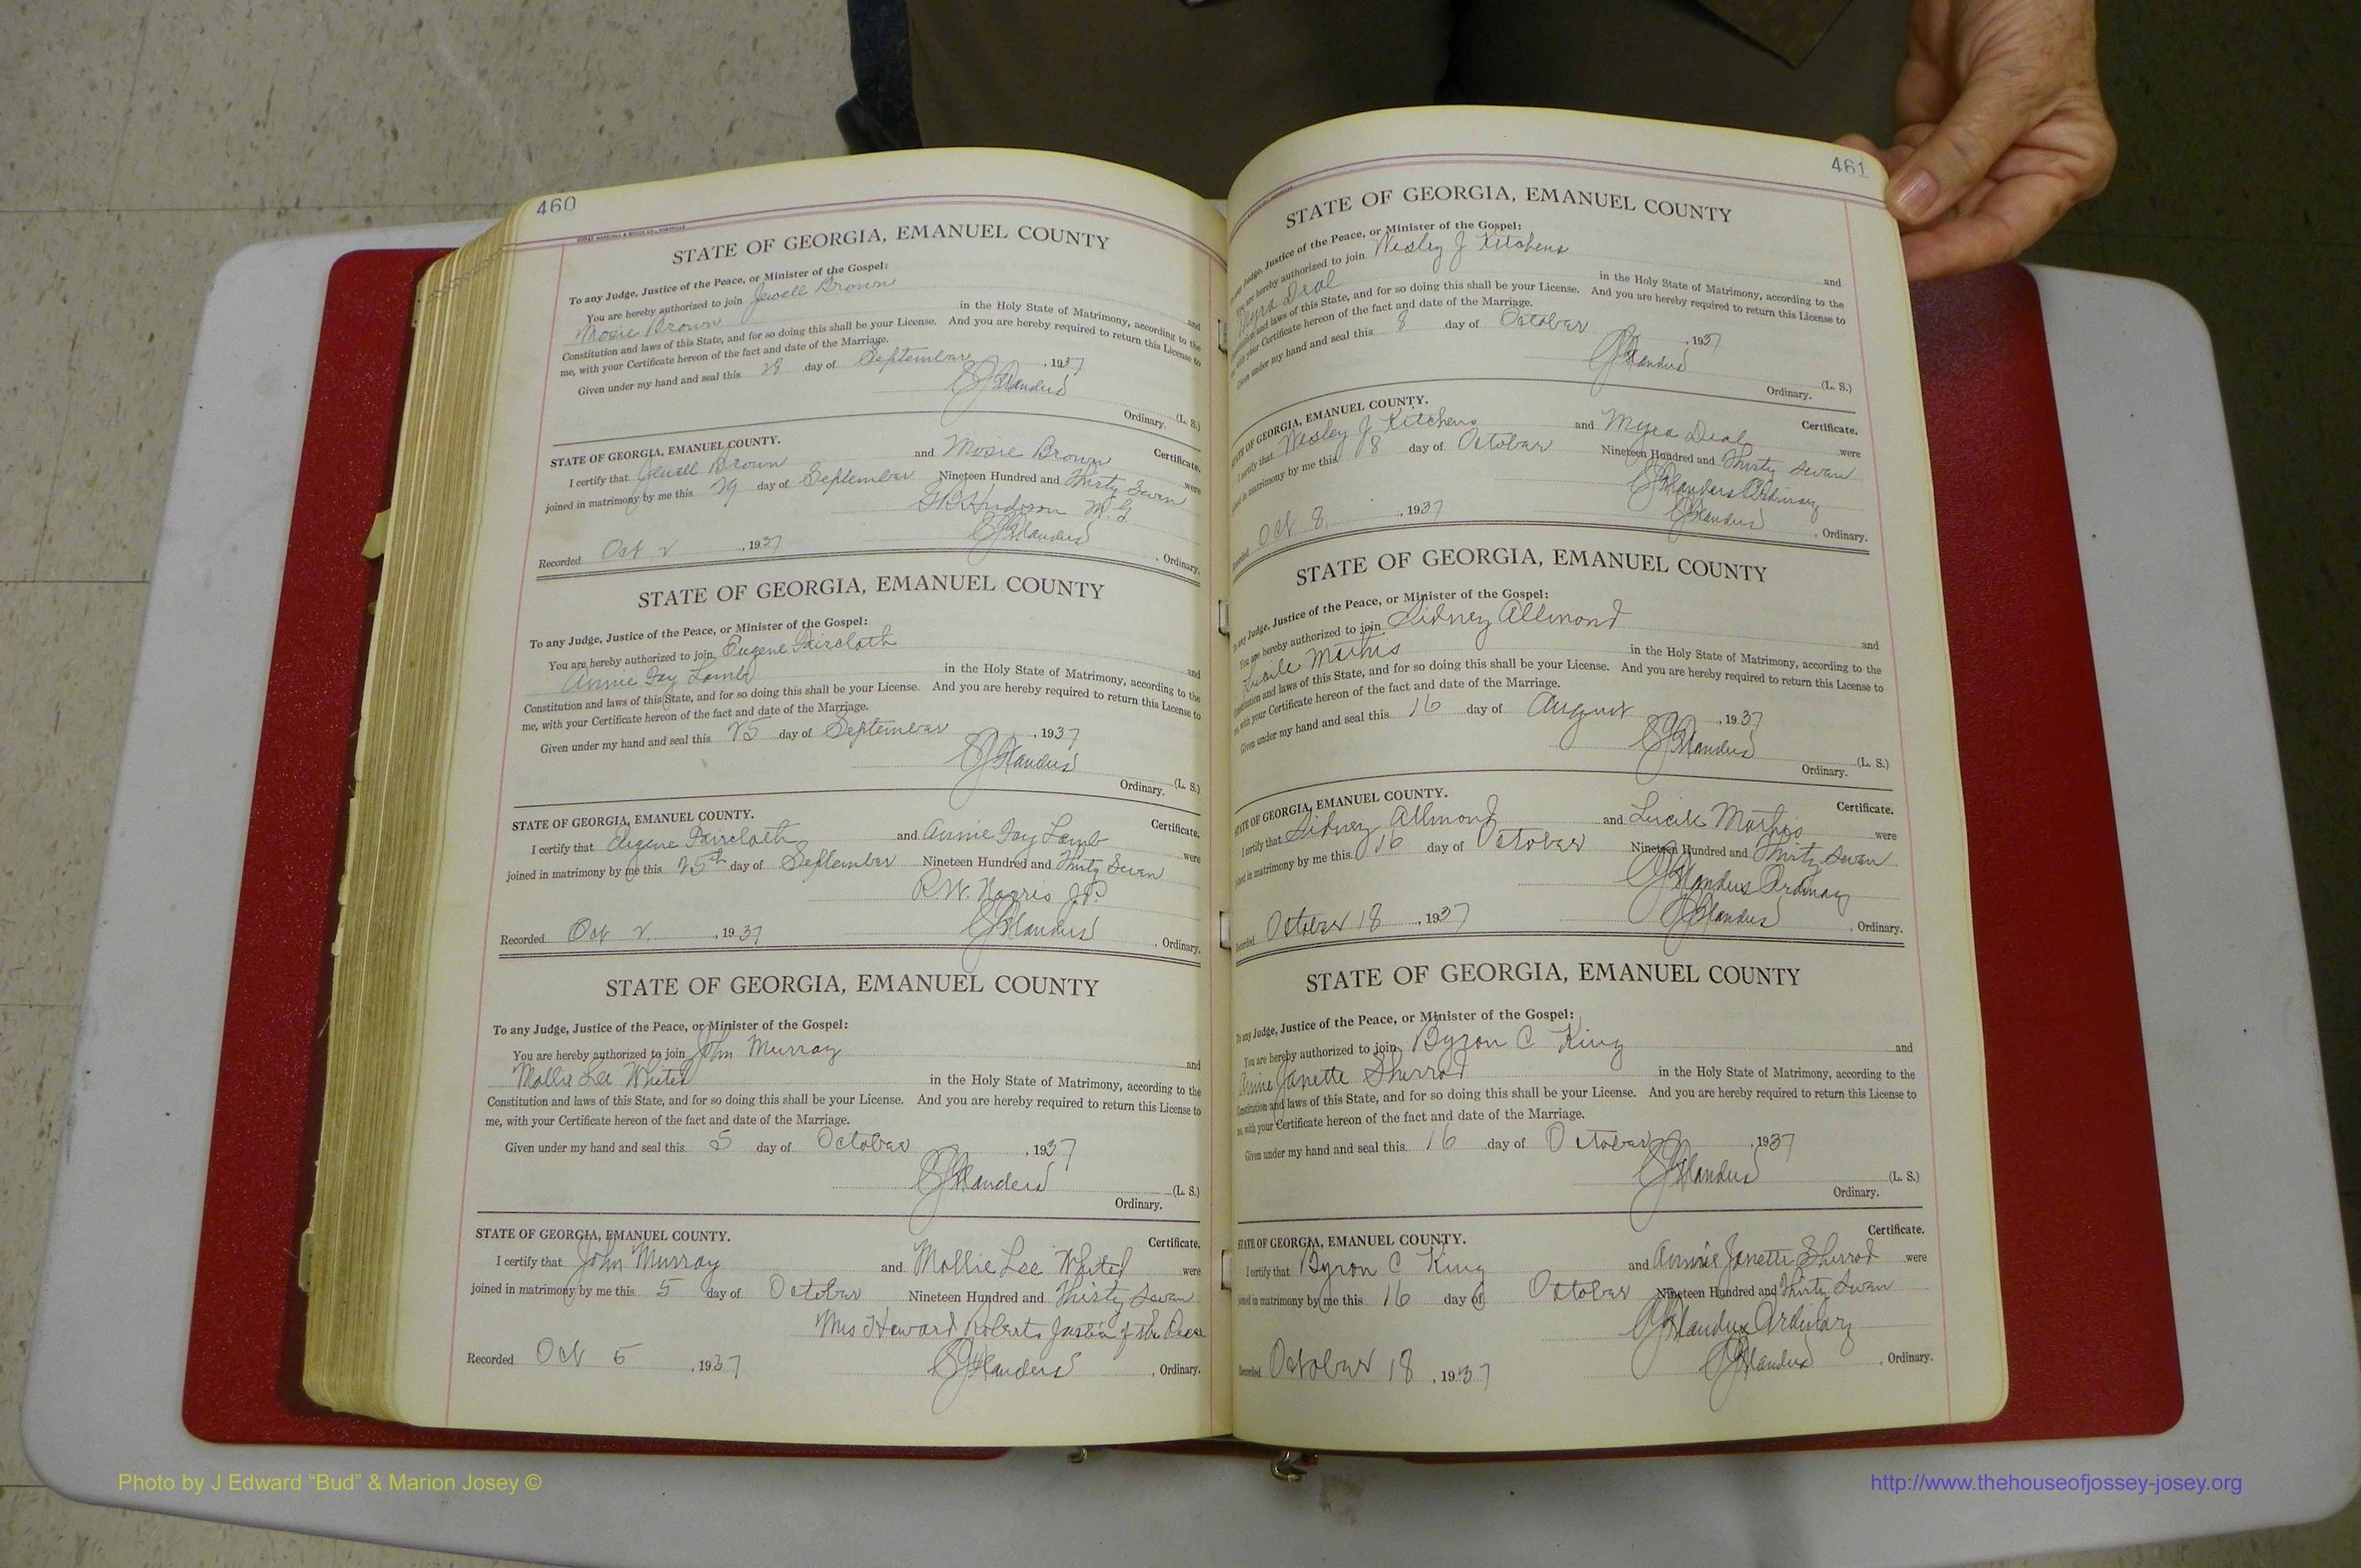 460
STATE OF GEORGIA, EMANUEL COUNTY
To any Judge, Justice of the Peace, or Minister of the Gospel:
You are hereby authorized to join Jewell Brown and
Mosie Brown in the Holy State of Matrimony, according to the
Constitution and laws of this State, and for so doing this shall be your License. And you are hereby required to return this License to
me, with your Certificate hereon of the fact and date of the Marriage.
Given under my hand and seal this 28 day of September, 1937
(L. S.)
Ordinary.
STATE OF GEORGIA, EMANUEL COUNTY. Certificate.
I certify that Jewell Brown and Mosie Brown were
joined in matrimony by me this 29 day of September Nineteen Hundred and Thirty Seven
Hudson M.G
Recorded Oct 2, 1937 , Ordinary.
STATE OF GEORGIA, EMANUEL COUNTY
To any Judge, Justice of the Peace, or Minister of the Gospel:
You are hereby authorized to join Eugene Faircloth and
Annie Fay Lamb in the Holy State of Matrimony, according to the
Constitution and laws of this State, and for so doing this shall be your License. And you are hereby required to return this License to
me, with your Certificate hereon of the fact and date of the Marriage.
Given under my hand and seal this 25 day of September, 1937
(L. S.)
Ordinary.
STATE OF GEORGIA, EMANUEL COUNTY. Certificate.
I certify that Eugene Faircloth and Annie Fay Lamb were
joined in matrimony by me this 25th day of September Nineteen Hundred and Thirty Seven
R.W. Norris J.P.
Recorded Oct 2, 1937 , Ordinary.
STATE OF GEORGIA, EMANUEL COUNTY
To any Judge, Justice of the Peace, or Minister of the Gospel:
You are hereby authorized to join John Murray and
Mollie Lee Whited in the Holy State of Matrimony, according to the
Constitution and laws of this State, and for so doing this shall be your License. And you are hereby required to return this License to
me, with your Certificate hereon of the fact and date of the Marriage.
Given under my hand and seal this 5 day of October, 1937
(L. S.)
Ordinary.
STATE OF GEORGIA, EMANUEL COUNTY. Certificate.
I certify that John Murray and Mollie Lee Whited were
joined in matrimony by me this 5 day of October Nineteen Hundred and Thirty Seven
Mrs Howard Roberts Justice of the Peace
Recorded Oct 5, 1937 , Ordinary.
461
STATE OF GEORGIA, EMANUEL COUNTY
any Judge, Justice of the Peace, or Minister of the Gospel:
You are hereby authorized to join Wesley J Kitchens and
Myra Deal in the Holy State of Matrimony, according to the
Constitution and laws of this State, and for so doing this shall be your License. And you are hereby required to return this License to
me, with your Certificate hereon of the fact and date of the Marriage.
Given under my hand and seal this 8 day of October, 1937
(L. S.)
Ordinary.
STATE OF GEORGIA, EMANUEL COUNTY. Certificate.
I certify that Wesley J Kitchens and Myra Deal were
joined in matrimony by me this 8 day of October Nineteen Hundred and Thirty Seven
Flanders Ordinary
Recorded Oct 8, 1937 , Ordinary.
STATE OF GEORGIA, EMANUEL COUNTY
To any Judge, Justice of the Peace, or Minister of the Gospel:
You are hereby authorized to join Sidney Allmond and
Lucile Mathis in the Holy State of Matrimony, according to the
Constitution and laws of this State, and for so doing this shall be your License. And you are hereby required to return this License to
me, with your Certificate hereon of the fact and date of the Marriage.
Given under my hand and seal this 16 day of August, 1937
(L. S.)
Ordinary.
STATE OF GEORGIA, EMANUEL COUNTY. Certificate.
I certify that Sidney Allmond and Lucile Mathis were
joined in matrimony by me this 16 day of October Nineteen Hundred and Thirty Seven
Flanders Ordinary
Recorded October 18, 1937 , Ordinary.
STATE OF GEORGIA, EMANUEL COUNTY
To any Judge, Justice of the Peace, or Minister of the Gospel:
You are hereby authorized to join Byron C King and
Annie Janette Sherrod in the Holy State of Matrimony, according to the
Constitution and laws of this State, and for so doing this shall be your License. And you are hereby required to return this License to
me, with your Certificate hereon of the fact and date of the Marriage.
Given under my hand and seal this 16 day of October, 1937
(L. S.)
Ordinary.
STATE OF GEORGIA, EMANUEL COUNTY. Certificate.
I certify that Byron C King and Annie Janette Sherrod were
joined in matrimony by me this 16 day of October Nineteen Hundred and Thirty Seven
Flanders Ordinary
Recorded October 18, 1937 , Ordinary.
Photo by J Edward “Bud” & Marion Josey ©
http://www.thehouseofjossey-josey.org